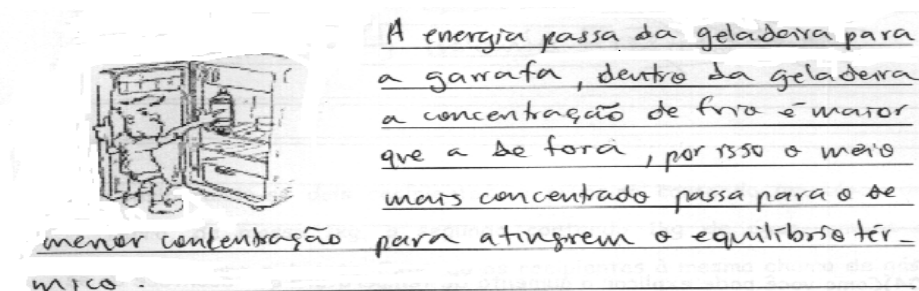 A energia passa da geladeira para
a garrafa, dentro da geladeira
a concentração de frio é maior
que a de fora, por isso o meio
mais concentrado passa para o de
menor concentração para atingirem o equilíbrio tér-
mico.